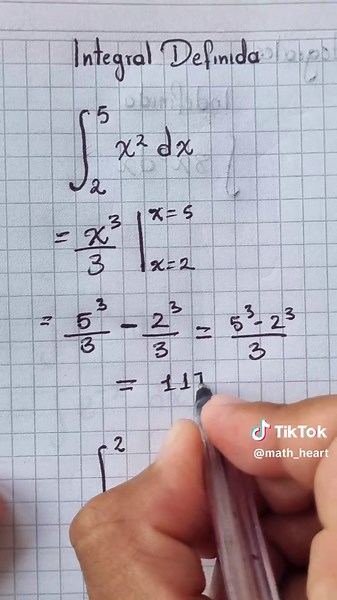 Integral Definida
∫₂⁵ x² dx
= x³/3 |ₓ₌₂ˣ⁼⁵
= 5³/3 - 2³/3 = 5³-2³/3
= 117
∫²
TikTok
@math_heart